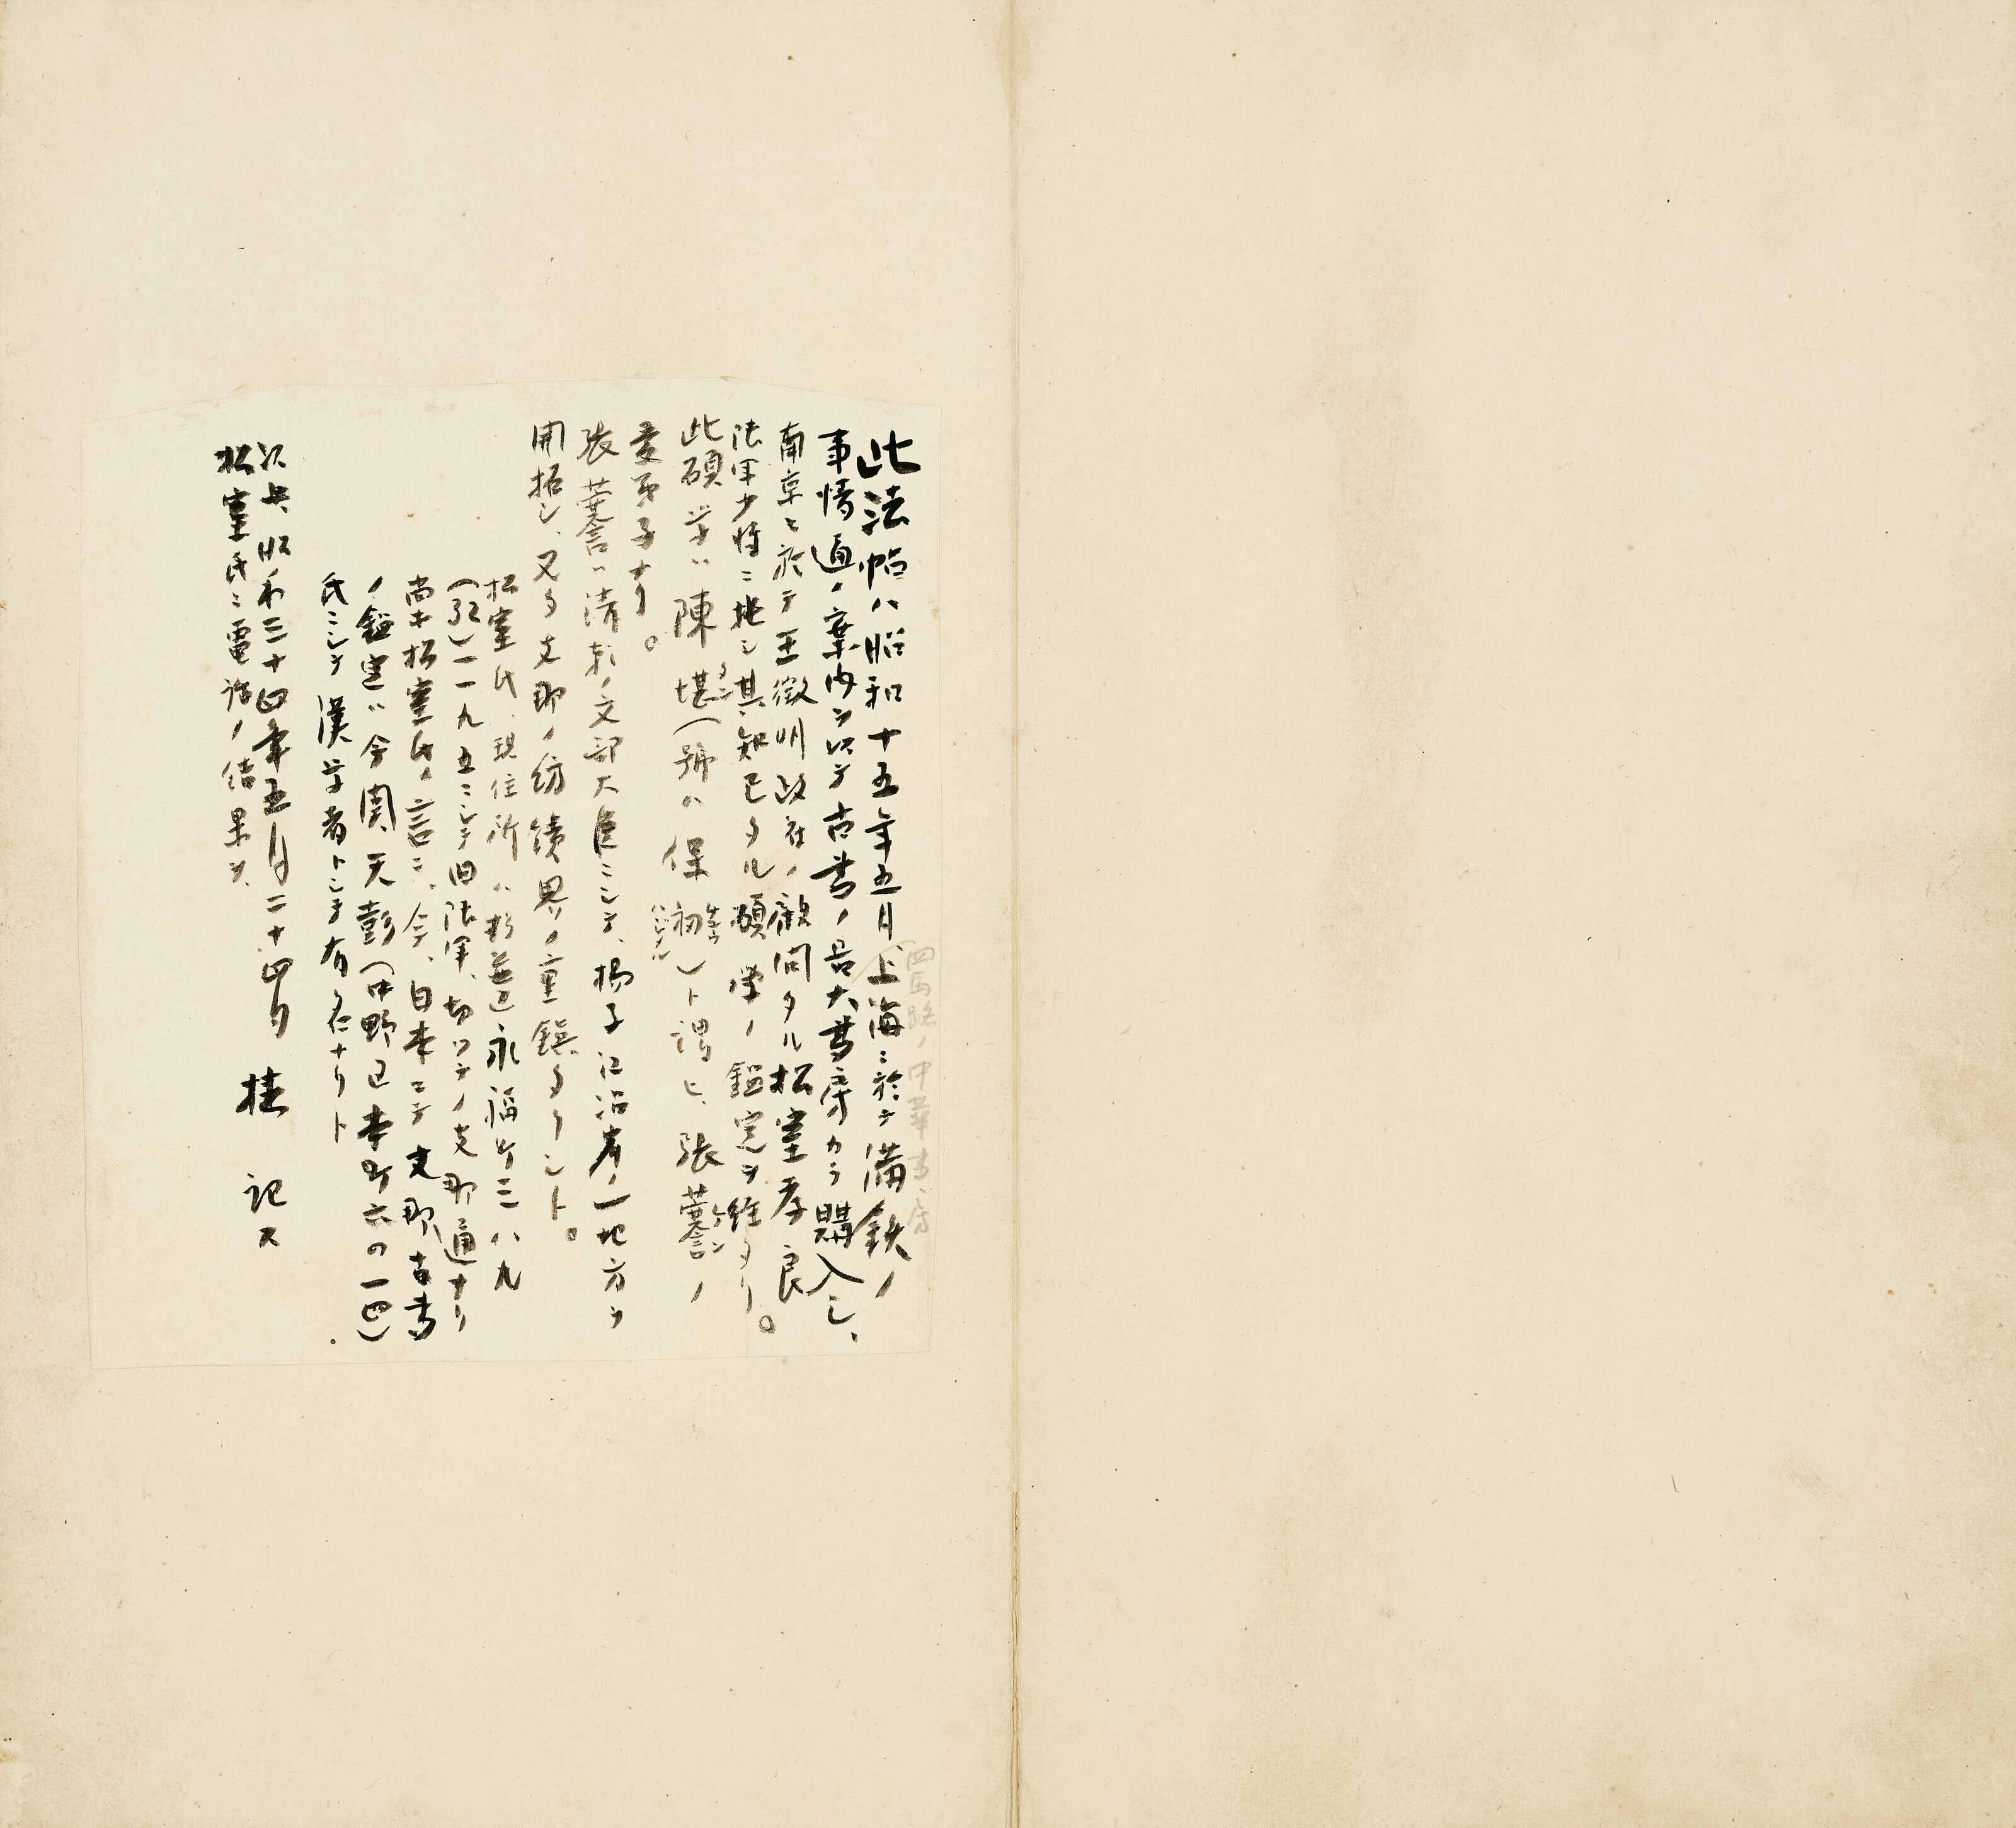 四馬路ノ中華書房
此法帖ハ昭和十五年五月、上海ニ於テ満鉄ノ
事情通ノ案内ヲ以テ古書ノ最大書房カラ購入シ、
南京ニ於テ王徴明政社ノ顧問タル松室孝良
陸軍少将ニ托シ其知己タル碩学ノ鑑定ヲ経タリ。
此碩学ハ陳堪(號ハ保初)ト謂ヒ、張謇ノ
愛弟子ナリ。
張謇ハ清朝ノ文部大臣ニシテ、揚子江沿岸ノ一地方ヲ
開拓シ、又タ支那ノ紡績界ノ重鎮タリシト。
松室氏、現住所ハ杉並区永福町三八九
一一九五ニシテ旧陸軍、切ッテノ支那通ナリ
尚ホ松室氏ノ言ニ、今、日本ニテ支那古書
ノ鑑定ハ今関天彭(中野区本町六の一四)
氏ニシテ漢学者トシテ有名ナリト
昭和三十四年五月二十四日 桂 記ス
松室氏ニ電話ノ結果ヲ、